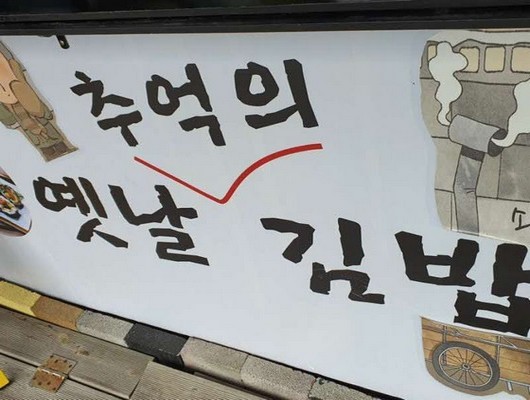 추억의
옛날 김밥